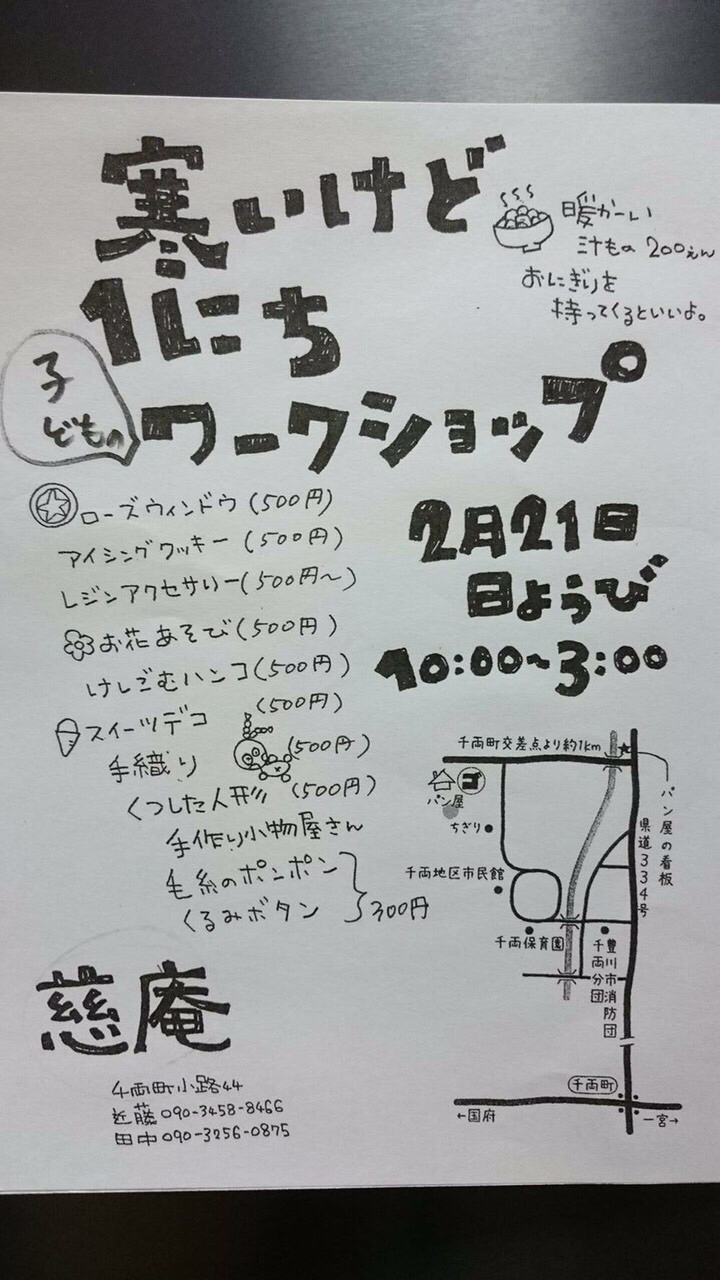 寒いけど
1にち
子
どもの
ワークショップ
暖かーい
汁もの 200えん
おにぎりを
持ってくるといいよ。
ローズウィンドウ (500円)
アイシングクッキー (500円)
レジンアクセサリー (500円〜)
お花あそび (500円)
けしごむハンコ (500円)
スイーツデコ (500円)
手織り (500円)
くつした人形 (500円)
手作り小物屋さん
毛糸のポンポン
くるみボタン
300円
2月21日
日ようび
10:00~3:00
千両町交差点より約1km
パン屋
ちぎり
千両地区市民館
千両保育園
豊川市消防団
千両分団
県道334号
パン屋の看板
千両町
←国府
一宮→
慈庵
千両町小路44
近藤 090-3458-8466
田中 090-3256-0875